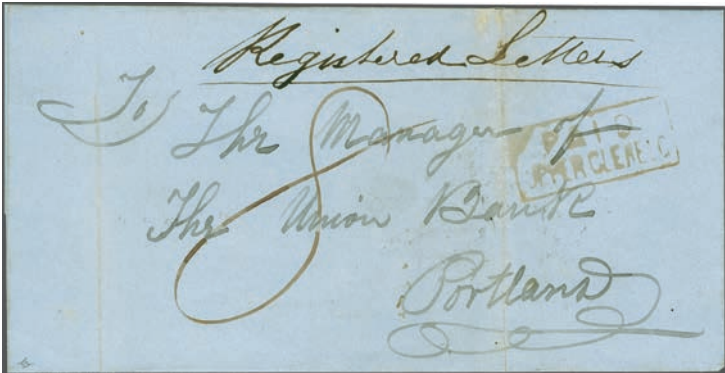 Registered Letters
To The Manager of
The Union Bank
Portland
8
PAID
UPPER GLENELG